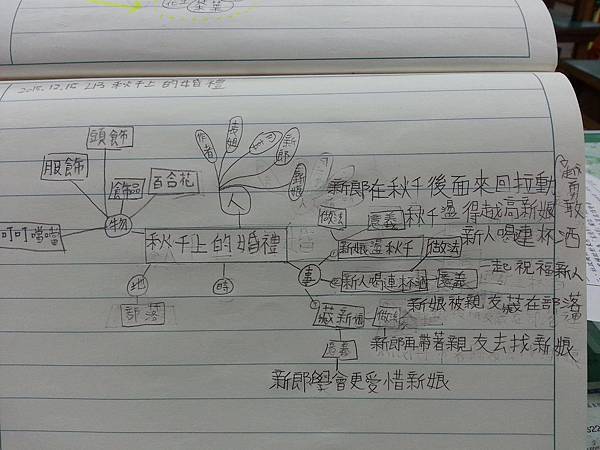 2015.12.15 L13 秋千上的婚禮
頭飾
服飾
飾品
百合花
叮叮噹噹
物
作者
表姐
新郎
新娘
人
秋千上的婚禮
地
部落
時
事
新娘盪秋千
做法
新郎在秋千後面來回拉動
意義
秋千盪得越高新娘越勇敢
新人喝連杯酒
做法
新人喝連杯酒
意義
一起祝福新人
藏新娘
做法
新娘被親友藏在部落裡
新郎再帶著親友去找新娘
意義
新郎學會更愛惜新娘